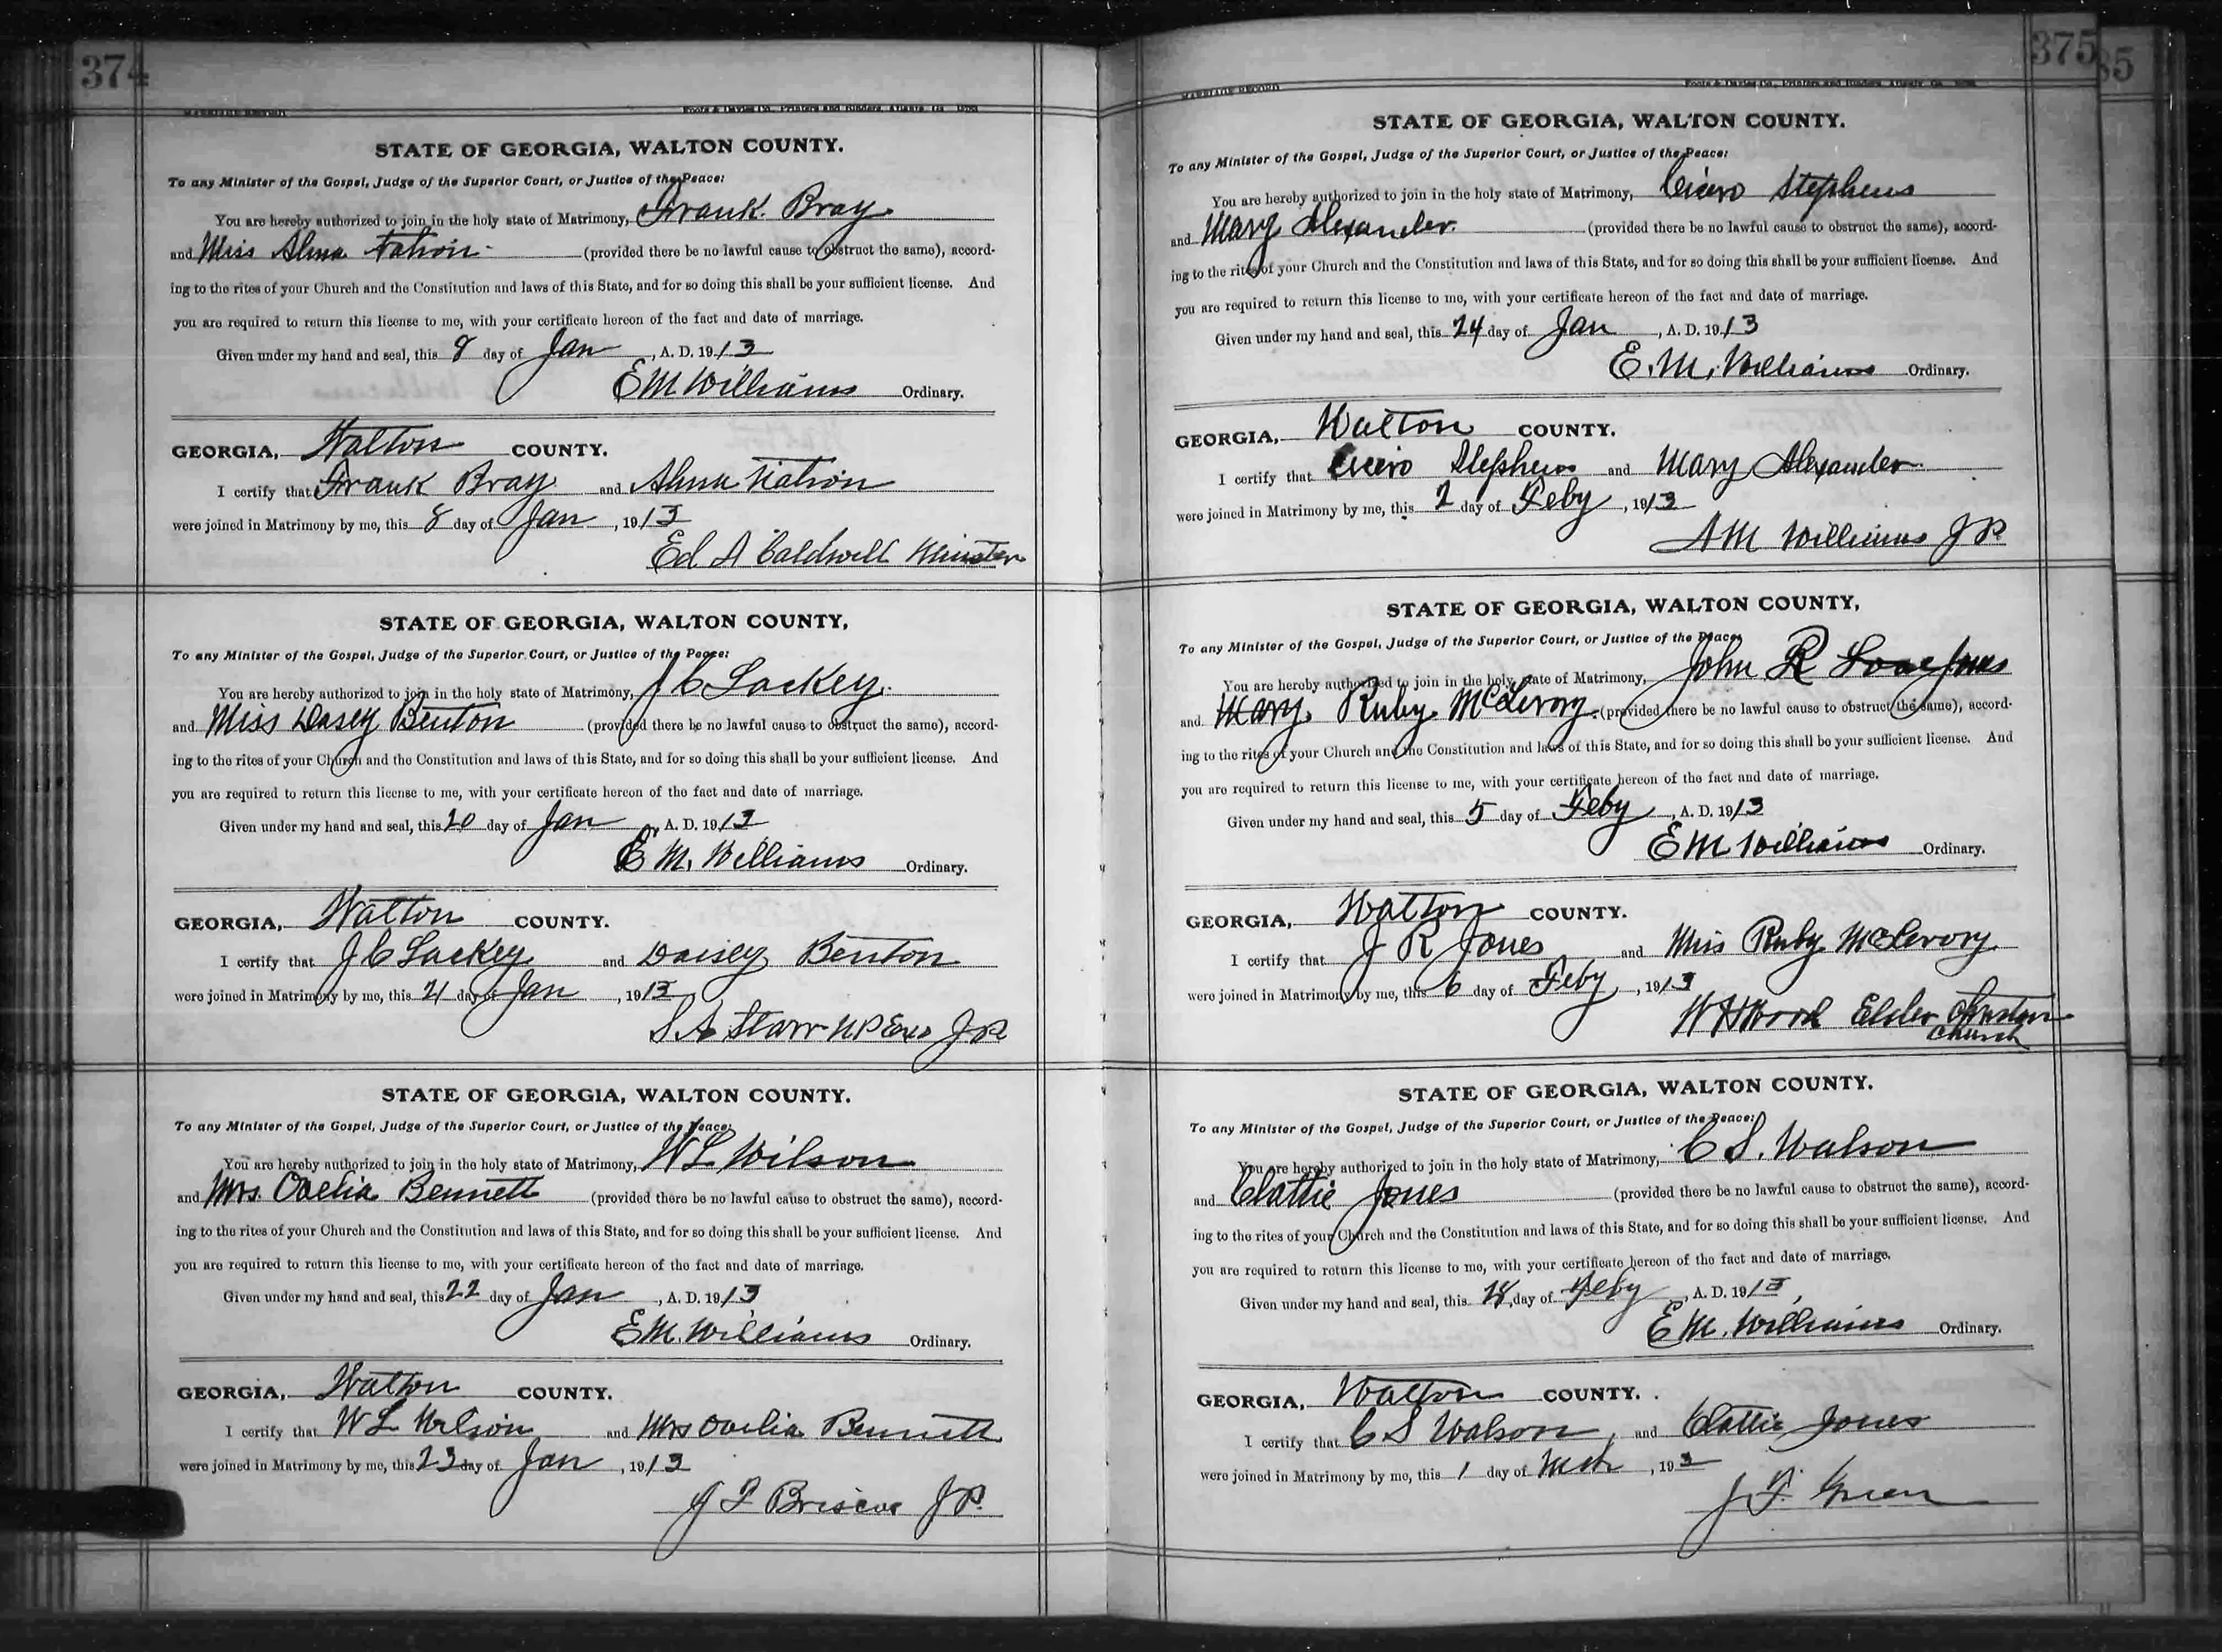 374
MARRIAGE RECORD Foote & Davies Co., Printers and Binders, Atlanta, Ga.
STATE OF GEORGIA, WALTON COUNTY.
To any Minister of the Gospel, Judge of the Superior Court, or Justice of the Peace:
You are hereby authorized to join in the holy state of Matrimony, Frank Bray
and Miss Alma (provided there be no lawful cause to obstruct the same), accord-
ing to the rites of your Church and the Constitution and laws of this State, and for so doing this shall be your sufficient license. And
you are required to return this license to me, with your certificate hereon of the fact and date of marriage.
Given under my hand and seal, this 8 day of Jan, A. D. 1913
E M Williams Ordinary.
GEORGIA, Walton COUNTY.
I certify that Frank Bray and Alma
were joined in Matrimony by me, this 8 day of Jan, 1913
Ed A Caldwell Minister
STATE OF GEORGIA, WALTON COUNTY,
To any Minister of the Gospel, Judge of the Superior Court, or Justice of the Peace:
You are hereby authorized to join in the holy state of Matrimony, J C Lackey.
and Miss Dasey Benton (provided there be no lawful cause to obstruct the same), accord-
ing to the rites of your Church and the Constitution and laws of this State, and for so doing this shall be your sufficient license. And
you are required to return this license to me, with your certificate hereon of the fact and date of marriage.
Given under my hand and seal, this 20 day of Jan, A. D. 1913
E M. Williams Ordinary.
GEORGIA, Walton COUNTY.
I certify that J C Lackey and Daisey Benton
were joined in Matrimony by me, this 21 day of Jan, 1913
S A Starr N P Exo J P
STATE OF GEORGIA, WALTON COUNTY.
To any Minister of the Gospel, Judge of the Superior Court, or Justice of the Peace:
You are hereby authorized to join in the holy state of Matrimony, W L Wilson
and Mrs Ovelia Bennett (provided there be no lawful cause to obstruct the same), accord-
ing to the rites of your Church and the Constitution and laws of this State, and for so doing this shall be your sufficient license. And
you are required to return this license to me, with your certificate hereon of the fact and date of marriage.
Given under my hand and seal, this 22 day of Jan, A. D. 1913
E M. Williams Ordinary.
GEORGIA, Walton COUNTY.
I certify that W L Wilson and Mrs Ovelia Bennett
were joined in Matrimony by me, this 23 day of Jan, 1913
J T Briscoe J P.
375
85
MARRIAGE RECORD Foote & Davies Co., Printers and Binders, Atlanta, Ga.
STATE OF GEORGIA, WALTON COUNTY.
To any Minister of the Gospel, Judge of the Superior Court, or Justice of the Peace:
You are hereby authorized to join in the holy state of Matrimony, Cicero Stephens
and Mary Alexander. (provided there be no lawful cause to obstruct the same), accord-
ing to the rites of your Church and the Constitution and laws of this State, and for so doing this shall be your sufficient license. And
you are required to return this license to me, with your certificate hereon of the fact and date of marriage.
Given under my hand and seal, this 24 day of Jan, A. D. 1913
E. M. Williams Ordinary.
GEORGIA, Walton COUNTY.
I certify that Cicero Stephens and Mary Alexander
were joined in Matrimony by me, this 2 day of Feby, 1913
A M Williams J P
STATE OF GEORGIA, WALTON COUNTY,
To any Minister of the Gospel, Judge of the Superior Court, or Justice of the Peace:
You are hereby authorized to join in the holy state of Matrimony, John R Jones
and Mary Ruby McLevory (provided there be no lawful cause to obstruct the same), accord-
ing to the rites of your Church and the Constitution and laws of this State, and for so doing this shall be your sufficient license. And
you are required to return this license to me, with your certificate hereon of the fact and date of marriage.
Given under my hand and seal, this 5 day of Feby, A. D. 1913
E M Williams Ordinary.
GEORGIA, Walton COUNTY.
I certify that J R Jones and Miss Ruby McLevory
were joined in Matrimony by me, this 6 day of Feby, 1913
W H Wood Elder Christian
Church
STATE OF GEORGIA, WALTON COUNTY.
To any Minister of the Gospel, Judge of the Superior Court, or Justice of the Peace:
You are hereby authorized to join in the holy state of Matrimony, C S. Watson
and Clattie Jones (provided there be no lawful cause to obstruct the same), accord-
ing to the rites of your Church and the Constitution and laws of this State, and for so doing this shall be your sufficient license. And
you are required to return this license to me, with your certificate hereon of the fact and date of marriage.
Given under my hand and seal, this 28 day of Feby, A. D. 1913
E M. Williams Ordinary.
GEORGIA, Walton COUNTY.
I certify that C S Watson, and Clattie Jones
were joined in Matrimony by me, this 1 day of Mch, 193
J F. Green